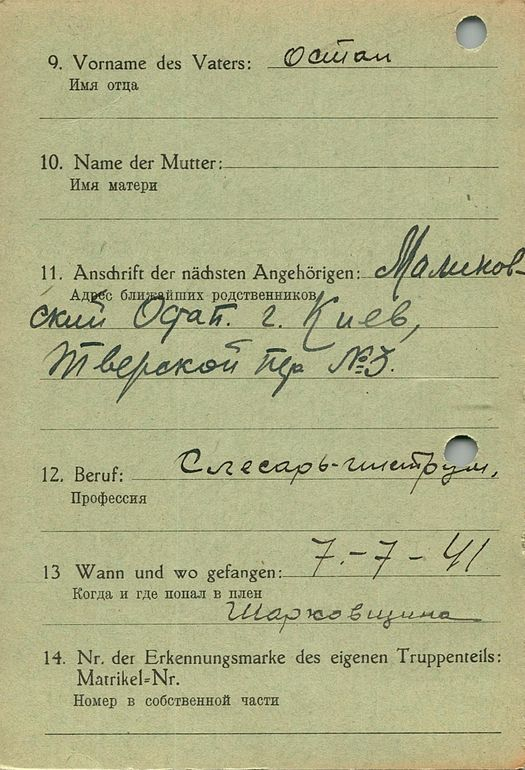 9. Vorname des Vaters: Остап
Имя отца
10. Name der Mutter:
Имя матери
11. Anschrift der nächsten Angehörigen: Малинов-
Адрес ближайших родственников
ский Остап. г. Киев,
Тверской №3.
12. Beruf: Слесарь-инструм.
Профессия
13 Wann und wo gefangen: 7.-7-41
Когда и где попал в плен
Шарковщина
14. Nr. der Erkennungsmarke des eigenen Truppenteils:
Matrikel-Nr.
Номер в собственной части